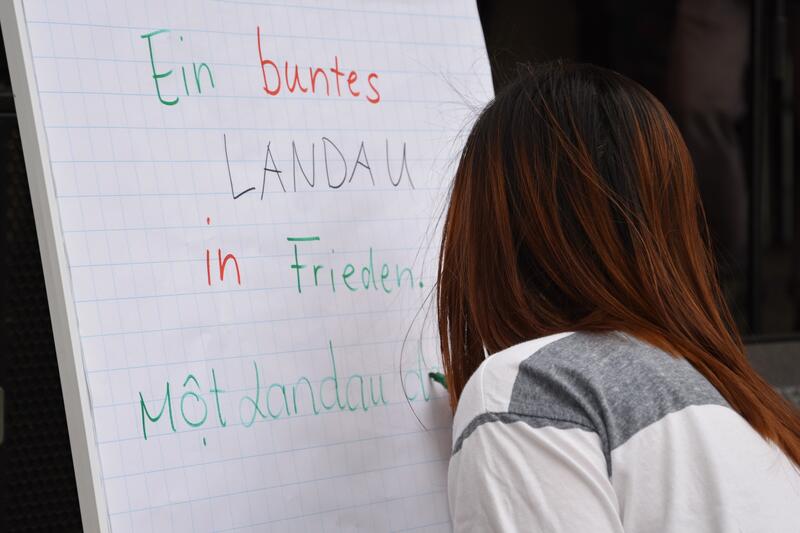 Ein buntes
LANDAU
in Frieden.
Một Landau đ